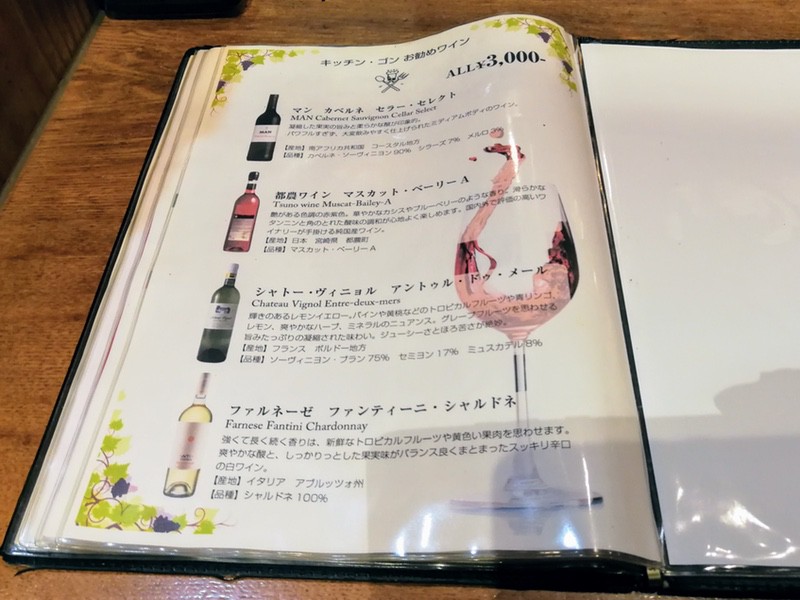 キッチン・ゴン お勧めワイン
ALL¥3,000~
マン カベルネ セラー・セレクト
MAN Cabernet Sauvignon Cellar Select
凝縮した果実の旨みと柔らかな酸が印象的。
パワフルすぎず、大変飲みやすく仕上げられたミディアムボディのワイン。
【産地】南アフリカ共和国 コースタル地方
【品種】カベルネ・ソーヴィニヨン90% シラーズ7% メルロ3%
MAN
都農ワイン マスカット・ベーリーA
Tsuno wine Muscat-Bailey-A
艶がある色調の赤紫色。華やかなカシスやブルーベリーのような香り、滑らかな
タンニンと角のとれた酸味の調和が心地よく楽しめます。国内外で評価の高いワ
イナリーが手掛ける純国産ワイン。
【産地】日本 宮崎県 都農町
【品種】マスカット・ベーリーA
シャトー・ヴィニョル アントゥル・ドゥ・メール
Chateau Vignol Entre-deux-mers
輝きのあるレモンイエロー。パインや黄桃などのトロピカルフルーツや青リンゴ、
レモン、爽やかなハーブ、ミネラルのニュアンス。グレープフルーツを思わせる
旨みたっぷりの凝縮された味わい。ジューシーさとほろ苦さが絶妙。
【産地】フランス ボルドー地方
【品種】ソーヴィニヨン・ブラン75% セミヨン17% ミュスカデル8%
ファルネーゼ ファンティーニ・シャルドネ
Farnese Fantini Chardonnay
強くて長く続く香りは、新鮮なトロピカルフルーツや黄色い果肉を思わせます。
爽やかな酸と、しっかりっとした果実味がバランス良くまとまったスッキリ辛口
の白ワイン。
【産地】イタリア アブルッツォ州
【品種】シャルドネ100%